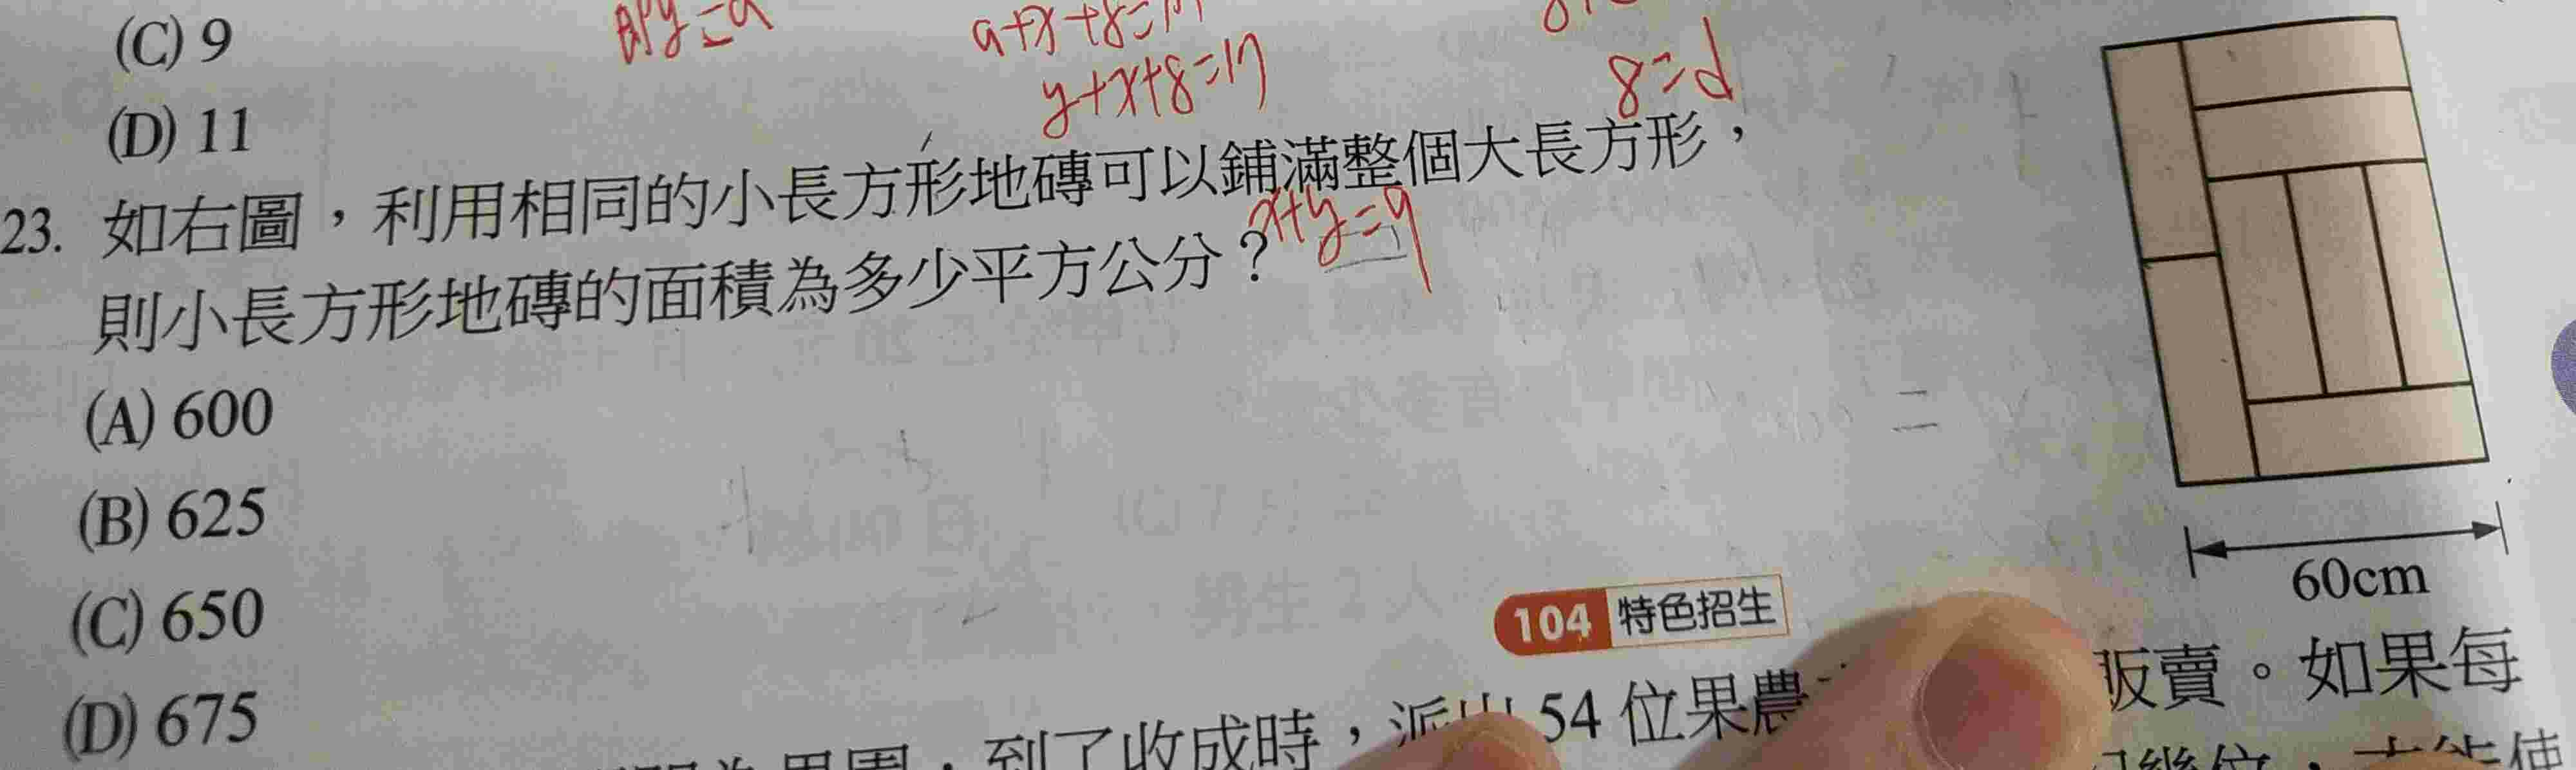 (C) 9
a+x+8=17
y+x+8=17
8=d
(D) 11
23. 如右圖,利用相同的小長方形地磚可以鋪滿整個大長方形,
x+y=9
則小長方形地磚的面積為多少平方公分?
(A) 600
(B) 625
(C) 650
(D) 675
60cm
104 特色招生
54 位果農 販賣。如果每
到了收成時,派出